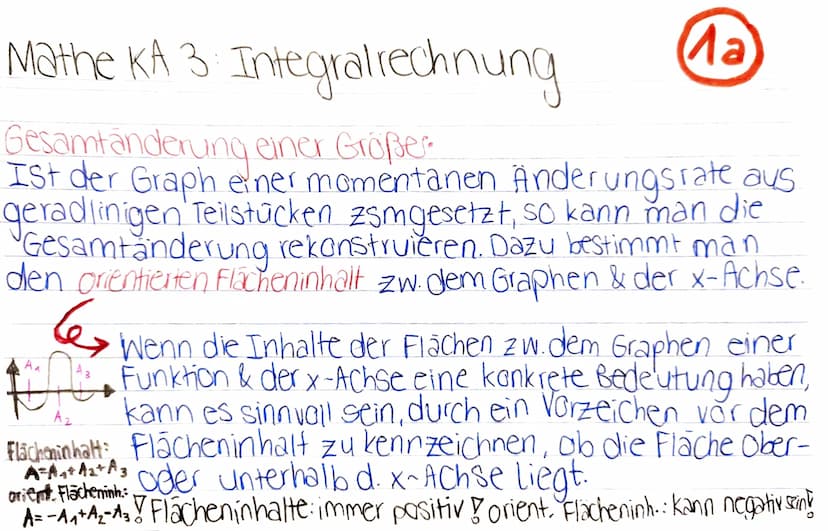 Mathe KA 3: Integralrechnung
1a
Gesamtänderung einer Größe:
Ist der Graph einer momentanen Änderungsrate aus
geradlinigen Teilstücken zsmgesetzt, so kann man die
Gesamtänderung rekonstruieren. Dazu bestimmt man
den orientierten Flächeninhalt zw. dem Graphen & der x-Achse.
Wenn die Inhalte der Flächen zw. dem Graphen einer
Funktion & der x-Achse eine konkrete Bedeutung haben,
kann es sinnvoll sein, durch ein Vorzeichen vor dem
Flächeninhalt zu kennzeichnen, ob die Fläche ober-
oder unterhalb d. x-Achse liegt.
A₁
A₃
A₂
Flächeninhalt:
A=A₁+A₂+A₃
orient. Flächeninh.:
A=-A₁+A₂-A₃
! Flächeninhalte: immer positiv ! orient. Flächeninh.: kann negativ sein!